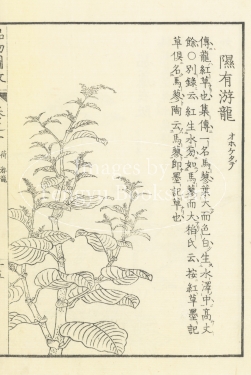 隰有游龍
オホケタデ
傳龍紅草也集傳一名馬蓼葉大而色白生水澤中高丈
餘○別錄云紅生水旁如馬蓼而大稻氏云按紅草墨記
草俱名馬蓼陶云馬蓼即墨記草也
荷 游龍